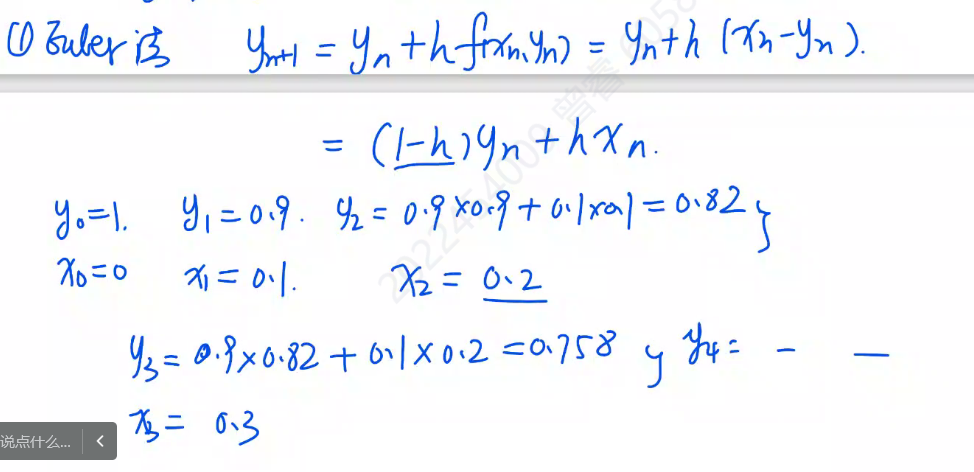 (1) Euler法 yₙ₊₁ = yₙ + h f(xₙ, yₙ) = yₙ + h (xₙ - yₙ).
= (1-h)yₙ + hxₙ.
y₀=1. y₁=0.9. y₂ = 0.9×0.9+0.1×0.1=0.82 }
x₀=0 x₁=0.1. x₂ = 0.2
y₃=0.9×0.82+0.1×0.2=0.758 y y₄= - —
x₃= 0.3
说点什么... <